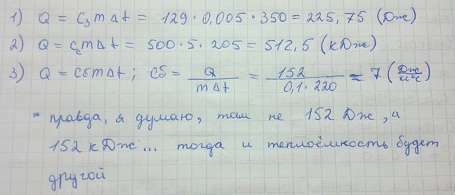 1) Q = c₃mΔt = 129 · 0,005 · 350 = 225,75 (Дж)
2) Q = c₂mΔt = 500 · 5 · 205 = 512,5 (кДж)
3) Q = cδmΔt ; cδ = Q/mΔt = 152/0,1·220 ≈ 7 (Дж/кг°С)
* правда, я думаю, там не 152 Дж, а
152 кДж... тогда и теплоёмкость будет
другой